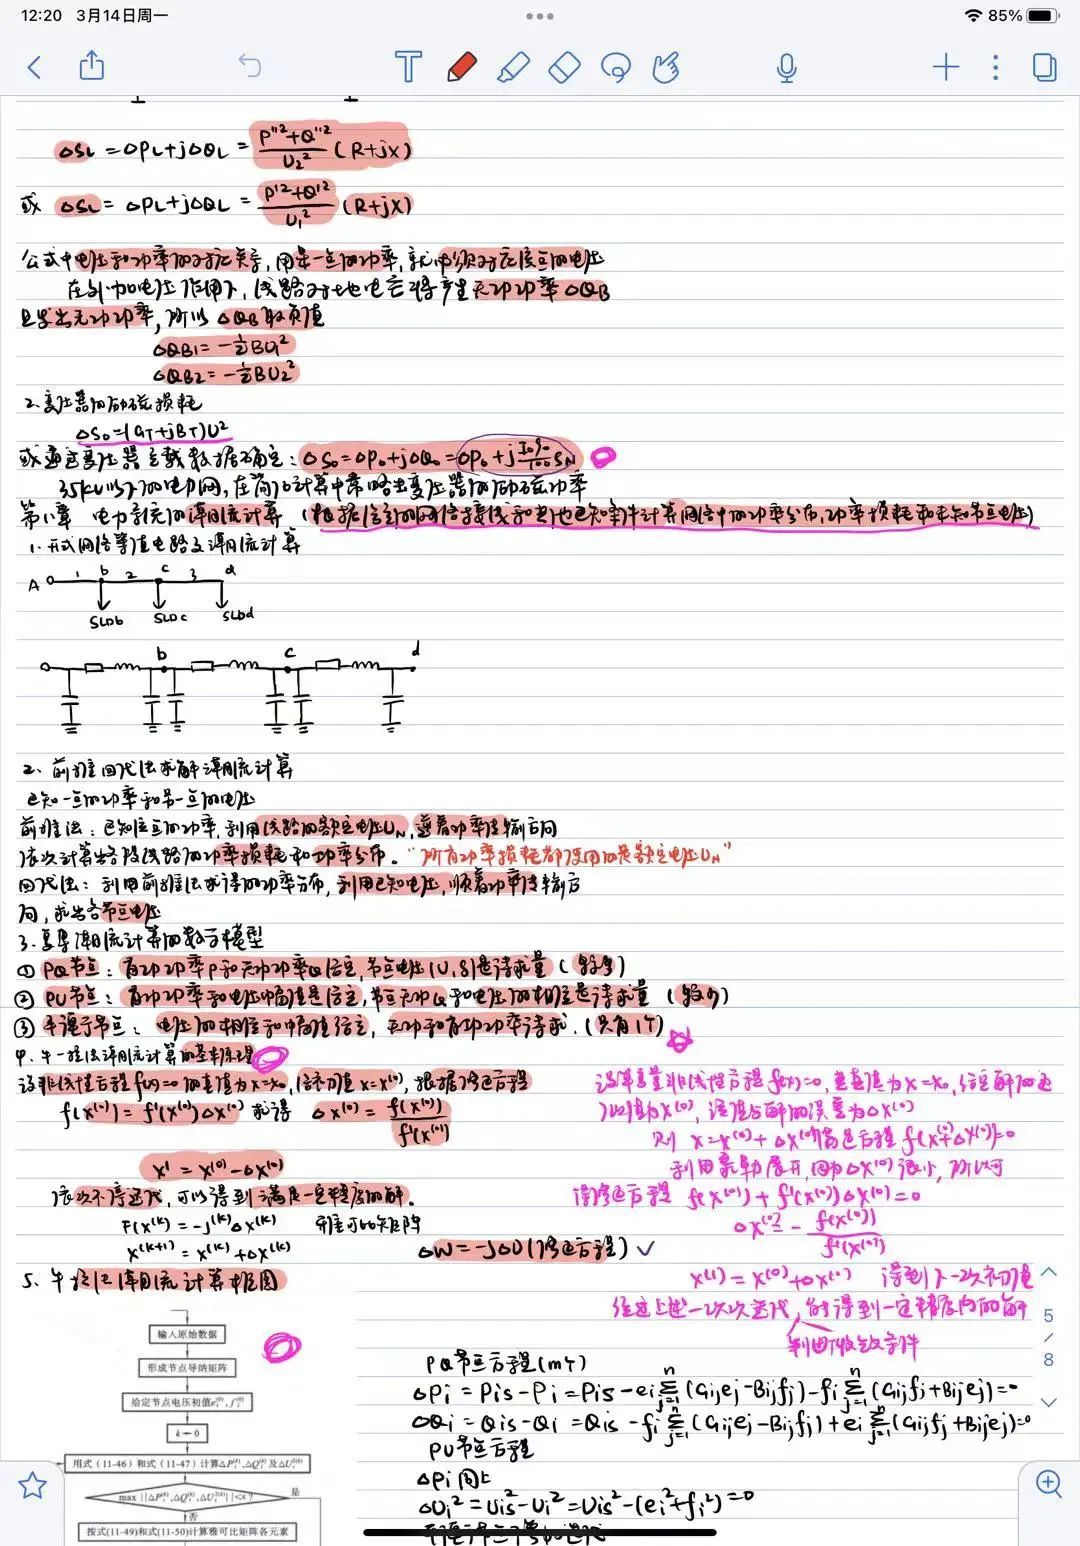 12:20 3月14日周一
85%
ΔSL = ΔPL+jΔQL = (P''²+Q''²)/U₂² (R+jX)
或 ΔSL = ΔPL+jΔQL = (P'²+Q'²)/U₁² (R+jX)
公式中电压和功率的对应关系,用某一点的功率,就必须对应该点的电压
在外加电压作用下,线路对地电容将产生无功功率ΔQB
且发出无功功率,所以ΔQB取负值
ΔQB1 = -½BU₁²
ΔQB2 = -½BU₂²
2.变压器的励磁损耗
ΔS₀=(GT+jBT)U²
或通过变压器空载数据确定:ΔS₀=ΔP₀+jΔQ₀=ΔP₀+j I₀%/100 SN
35kV以下的电力网,在简化计算中常略去变压器的励磁功率
第11章 电力系统的潮流计算 (根据给定的网络接线和其他已知条件计算网络中的功率分布,功率损耗和未知节点电压)
1.开式网络等值电路及潮流计算
A 1 b 2 c 3 d
SLDb SLDc SLDd
b c d
2、前推回代法求解潮流计算
已知一点的功率和另一点的电压
前推法:已知位点的功率,利用线路的额定电压UN,逆着功率传输方向
依次计算出各段线路的功率损耗和功率分布。“所有功率损耗都使用的是额定电压UN”
回代法:利用前推法求得的功率分布,利用已知电压,顺着功率传输方
向,求出各节点电压
3.复杂潮流计算的数学模型
① PQ节点:有功功率P和无功功率Q给定,节点电压(U,δ)是待求量(较多)
② PU节点:有功功率和电压幅值是给定,节点无功Q和电压的相位是待求量(较少)
③ 平衡节点:电压的相位和幅值给定,无功和有功功率待求.(只有1个)
4、牛-拉法潮流计算的基本原理
设非线性方程f(x)=0的真值为x=x₀,给初值x=x⁽⁰⁾,根据修正方程
f(x⁽⁰⁾)=f'(x⁽⁰⁾)Δx⁽⁰⁾ 求得 Δx⁽⁰⁾ = f(x⁽⁰⁾)/f'(x⁽⁰⁾)
x' = x⁽⁰⁾-Δx⁽⁰⁾
依次不停迭代,可以得到满足一定精度的解.
F(x⁽ᵏ⁾)=-J⁽ᵏ⁾Δx⁽ᵏ⁾ 雅可比矩阵
x⁽ᵏ⁺¹⁾=x⁽ᵏ⁾+Δx⁽ᵏ⁾
ΔW=-JΔU(修正方程)✓
设单变量非线性方程f(x)=0,真值为x=x₀,给定解的近
似值为x⁽⁰⁾,该值与解的误差为Δx⁽⁰⁾
则 x=x⁽⁰⁾+Δx⁽⁰⁾满足方程 f(x⁽⁰⁾+Δx⁽⁰⁾)=0
利用泰勒展开,因为Δx⁽⁰⁾很小,所以可
得修正方程 f(x⁽⁰⁾)+f'(x⁽⁰⁾)Δx⁽⁰⁾=0
Δx⁽⁰⁾=-f(x⁽⁰⁾)/f'(x⁽⁰⁾)
x⁽¹⁾=x⁽⁰⁾+Δx⁽⁰⁾ 得到下一次初值
经过上述一次次迭代,能得到一定精度内的解
判断收敛条件
5、牛拉法潮流计算框图
输入原始数据
形成节点导纳矩阵
给定节点电压初值eᵢ⁽⁰⁾,fᵢ⁽⁰⁾
k=0
用式(11-46)和式(11-47)计算ΔPᵢ⁽ᵏ⁾,ΔQᵢ⁽ᵏ⁾及ΔUᵢ²⁽ᵏ⁾
max||ΔPᵢ⁽ᵏ⁾,ΔQᵢ⁽ᵏ⁾,ΔUᵢ²⁽ᵏ⁾||<ε?
是
否
按式(11-49)和式(11-50)计算雅可比矩阵各元素
PQ节点方程(m个)
ΔPi = Pis-Pi = Pis-ei∑ⁿⱼ₌₁(Gijej-Bijfj)-fi∑ⁿⱼ₌₁(Gijfj+Bijej)=0
ΔQi = Qis-Qi = Qis-fi∑ⁿⱼ₌₁(Gijej-Bijfj)+ei∑ⁿⱼ₌₁(Gijfj+Bijej)=0
PU节点方程
ΔPi同上
ΔUi²=Uis²-Ui²=Uis²-(ei²+fi²)=0
5
/
8